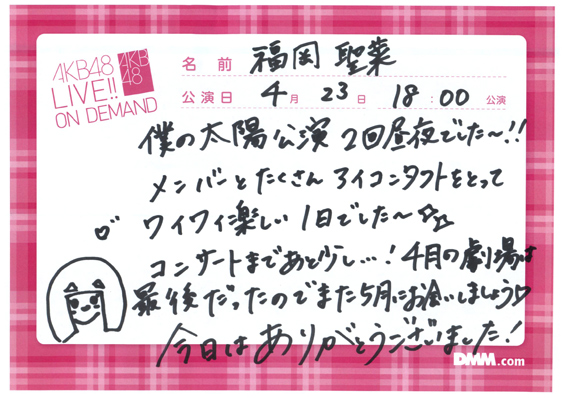 AKB48
LIVE!!
ON DEMAND
AKB
48
名前 福岡 聖菜
公演日 4月 23日 18:00 公演
僕の太陽公演 2回昼夜でした〜!!
メンバーとたくさんアイコンタクトをとって
ワイワイ楽しい1日でした〜☆☆
コンサートまであと少し…!4月の劇場は
最後だったのでまた5月にお会いしましょう♡
今日はありがとうございました!
DMM.com